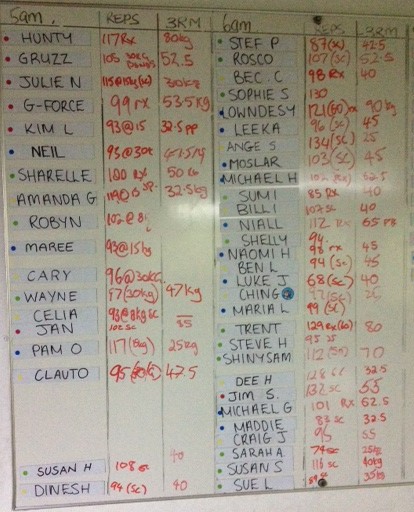 5am. REPS 3RM
HUNTY 117 Rx 80kg
GRUZZ 105 52.5
JULIE N 115@15kg(sc) 30kg
G-FORCE 99 rx 53.5kg
KIM L 93@15 32.5 pp
NEIL 93@30k
SHARELLE 100 Rx 50 kg
AMANDA G 32.5kg
ROBYN 102@8
MAREE 93@15kg
CARY 96@30kg
WAYNE 97(30kg) 47kg
CELIA 93@8kg sc
JAN 102 sc 35
PAM O 117(8kg) 25kg
CLAUTO 95 47.5
SUSAN H 108 40
DINESH 94(sc) 40
6am REPS 3RM
STEF P 87(sc) 42.5
ROSCO 107(sc) 52.5
BEC C 98 Rx 40
SOPHIE S 130
LOWNDESY 121(60)rx 90kg
LEEKA 96(sc) 45
ANGE S 134(sc) 25
MOSLAR 103(sc) 45
MICHAEL H 102(Rx) 52.5
SUMI 85 Rx 40
BILLI 107 sc 40
NIALL 112 Rx 65 PB
SHELLY 94
NAOMI H 98 rx 45
BEN L 94(sc) 45
LUKE J 68(sc) 40
CHING 97(sc)
MARIA L 99(sc)
TRENT 129 Rx(60) 80
STEVE H 95
SHINYSAM 112 70
DEE H 128 sc 32.5
JIM S. 132 sc 55
MICHAEL G 101 Rx 62.5
MADDIE 83 sc 32.5
CRAIG J 96 55
SARAH A 74 sc 25kg
SUSAN S 116 sc 40kg
SUE L 35kg